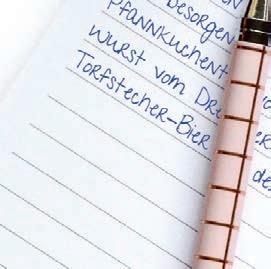 besorgen
Pfannkuchent
Wurst vom Dre
Torfstecher-Bier
de